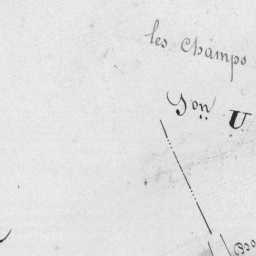 les champs
Son U